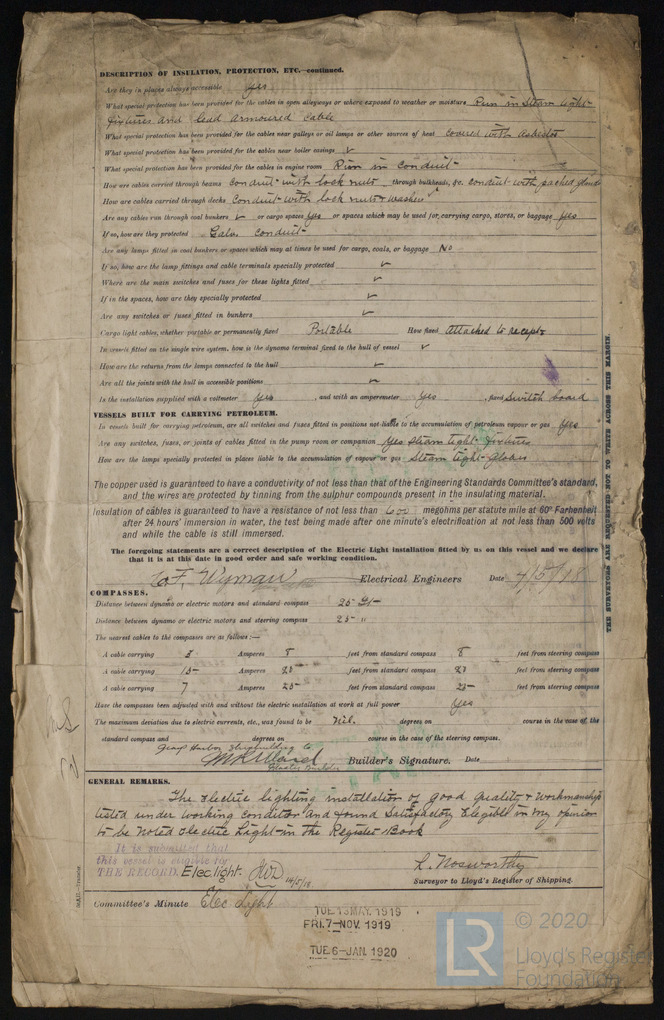 DESCRIPTION OF INSULATION, PROTECTION, ETC.—continued.
Are they in places always accessible Yes
What special protection has been provided for the cables in open alleyways or where exposed to weather or moisture Run in Steam tight
fixtures and lead armoured cable
What special protection has been provided for the cables near galleys or oil lamps or other sources of heat covered with asbestos
What special protection has been provided for the cables near boiler casings ✓
What special protection has been provided for the cables in engine room Run in conduit
How are cables carried through beams conduit with lock nuts through bulkheads, &c. conduit with packed glands
How are cables carried through decks Conduit with lock nuts & washers
Are any cables run through coal bunkers ✓ or cargo spaces Yes or spaces which may be used for carrying cargo, stores, or baggage Yes
If so, how are they protected Galv. conduit
Are any lamps fitted in coal bunkers or spaces which may at times be used for cargo, coals, or baggage No
If so, how are the lamp fittings and cable terminals specially protected ✓
Where are the main switches and fuses for these lights fitted ✓
If in the spaces, how are they specially protected ✓
Are any switches or fuses fitted in bunkers ✓
Cargo light cables, whether portable or permanently fixed Portable How fixed Attached to recepts
In vessels fitted on the single wire system, how is the dynamo terminal fixed to the hull of vessel ✓
How are the returns from the lamps connected to the hull ✓
Are all the joints with the hull in accessible positions ✓
Is the installation supplied with a voltmeter Yes , and with an amperemeter Yes , fixed Switch board
VESSELS BUILT FOR CARRYING PETROLEUM.
In vessels built for carrying petroleum, are all switches and fuses fitted in positions not liable to the accumulation of petroleum vapour or gas Yes
Are any switches, fuses, or joints of cables fitted in the pump room or companion Yes Steam tight fixtures
How are the lamps specially protected in places liable to the accumulation of vapour or gas Steam tight Globes
The copper used is guaranteed to have a conductivity of not less than that of the Engineering Standards Committee's standard,
and the wires are protected by tinning from the sulphur compounds present in the insulating material.
Insulation of cables is guaranteed to have a resistance of not less than 600 megohms per statute mile at 60° Farhenheit
after 24 hours' immersion in water, the test being made after one minute's electrification at not less than 500 volts
and while the cable is still immersed.
The foregoing statements are a correct description of the Electric Light installation fitted by us on this vessel and we declare
that it is at this date in good order and safe working condition.
F. Wyman Electrical Engineers Date 4/5/18
COMPASSES.
Distance between dynamo or electric motors and standard compass 25 ft
Distance between dynamo or electric motors and steering compass 25 "
The nearest cables to the compasses are as follows:—
A cable carrying 3 Amperes 8 feet from standard compass 8 feet from steering compass
A cable carrying 15 Amperes feet from standard compass feet from steering compass
A cable carrying 7 Amperes 25 feet from standard compass 25 feet from steering compass
Have the compasses been adjusted with and without the electric installation at work at full power Yes
The maximum deviation due to electric currents, etc., was found to be Nil. degrees on course in the case of the
standard compass and degrees on course in the case of the steering compass.
Harbor Shipbuilding Co
Ward Builder's Signature. Date
Master Builder
GENERAL REMARKS.
The electric lighting installation of good quality & workmanship
tested under working condition and found Satisfactory Eligible in my opinion
to be noted Electric Light in the Register Book
It is submitted that
this vessel is eligible for
THE RECORD. Elec light. 14/5/18
L. Nosworthy
Surveyor to Lloyd's Register of Shipping.
Committee's Minute Elec Light
TUE 13 MAY. 1919
FRI. 7-NOV. 1919
TUE. 6-JAN. 1920
THE SURVEYORS ARE REQUESTED NOT TO WRITE ACROSS THIS MARGIN.
LR
© 2020
Lloyd's Register
Foundation